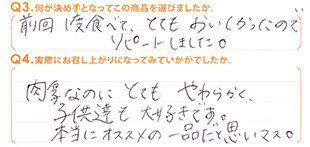 Q3.何が決め手となってこの商品を選びましたか。
前回1度食べて、とてもおいしかったので
リピートしました。
Q4.実際にお召し上がりになってみていかがでしたか。
肉厚なのにとてもやわらかく、
子供達も大好きです。
本当にオススメの一品だと思いマス。